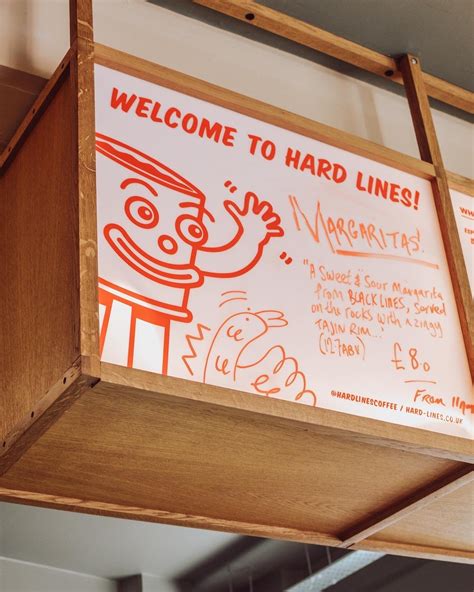 WELCOME TO HARD LINES!
MARGARITAS!
"A Sweet & Sour Margarita
from BLACKLINES, served
on the rocks with a zingy
TAJIN RIM...
£8.0
FROM 11
@HARDLINESCOFFEE / HARD-LINES.CO.UK